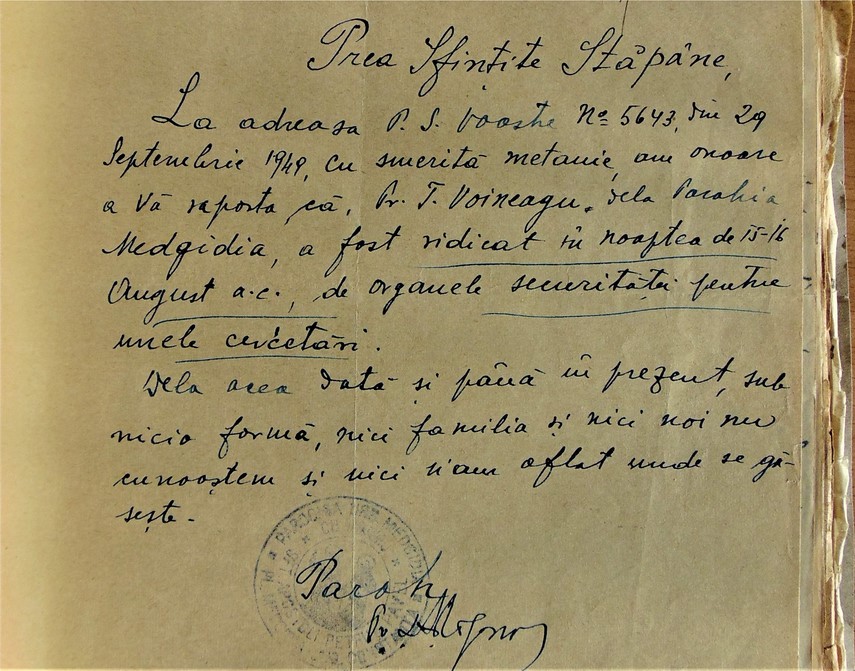 Prea Sfințite Stăpâne,
La adresa P. S. Voastre Nº 5643, din 29
Septembrie 1949, cu smerită metanie, am onoare
a Vă raporta, că, Pr. T. Voineagu, dela Parohia
Medgidia, a fost ridicat în noaptea de 15-16
August a.c., de organele securității pentru
unele cercetări.
Dela acea dată și până în prezent, sub
nicio formă, nici familia și nici noi nu
cunoaștem și nici n'am aflat unde se gă-
sește.
Paroh,
Pr.